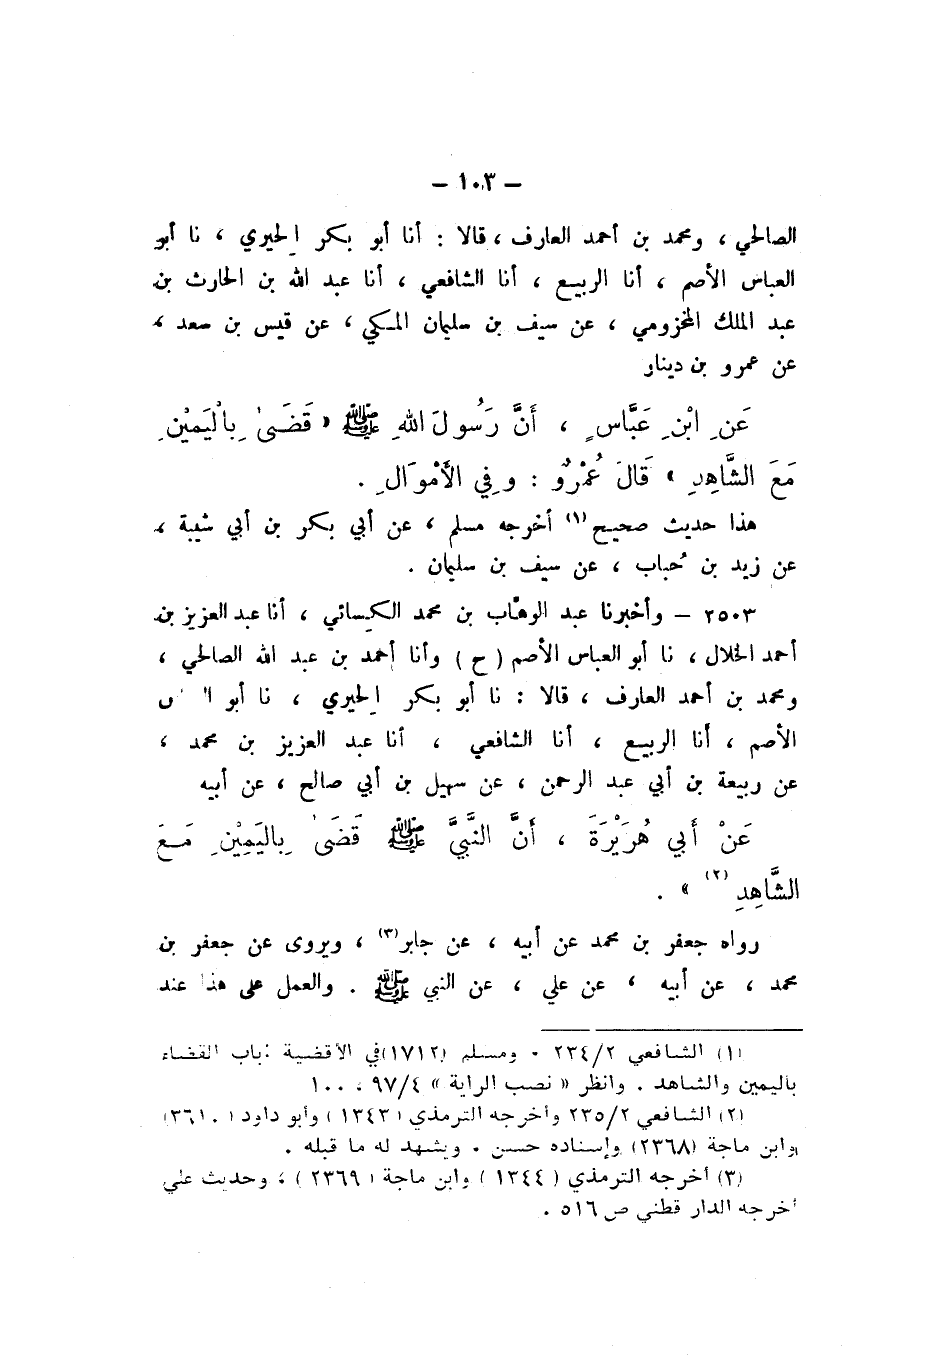 – ١٠٣ –
الصالحي ، ومحمد بن أحمد العارف ، قالا : أنا أبو بكر الحيري ، نا أبو
العباس الأصم ، أنا الربيع ، أنا الشافعي ، أنا عبد الله بن الحارث بن
عبد الملك المخزومي ، عن سيف بن سليمان المكي ، عن قيس بن سعد ،
عن عمرو بن دينار
عَنِ ابْنِ عَبَّاسٍ ، أَنَّ رَسُولَ اللهِ ﷺ « قَضَىٰ بِالْيَمِيْنِ
مَعَ الشَّاهِدِ » قَالَ عُمْرٌو : وفِي الأَمْوَالِ .
هذا حديث صحيح (١) أخرجه مسلم ، عن أبي بكر بن أبي شيبة ،
عن زيد بن حُباب ، عن سيف بن سليمان .
٢٥٠٣ – وأخبرنا عبد الوهّاب بن محمد الكسائي ، أنا عبد العزيز بن
أحمد الخلال ، نا أبو العباس الأصم ( ح ) وأنا أحمد بن عبد الله الصالحي ،
ومحمد بن أحمد العارف ، قالا : نا أبو بكر الحيري ، نا أبو
الأصم ، أنا الربيع ، أنا الشافعي ، أنا عبد العزيز بن محمد ،
عن ربيعة بن أبي عبد الرحمن ، عن سهيل بن أبي صالح ، عن أبيه
عَنْ أَبِي هُرَيْرَةَ ، أَنَّ النَّبِيَّ ﷺ قَضَىٰ بِاليَمِيْنِ مَعَ
الشَّاهِدِ (٢) » .
رواه جعفر بن محمد عن أبيه ، عن جابر (٣) ، ويروى عن جعفر بن
محمد ، عن أبيه ، عن علي ، عن النبي ﷺ . والعمل على هذا عند
(١) الشافعي ٢٣٤/٢ . ومسلم (١٧١٢) في الأقضية : باب القضاء
باليمين والشاهد . وانظر « نصب الراية » ٩٧/٤ ، ١٠٠
(٢) الشافعي ٢٣٥/٢ وأخرجه الترمذي ( ١٣٤٣ ) وأبو داود ( ٣٦١٠ )
وابن ماجة (٢٣٦٨) وإسناده حسن . ويشهد له ما قبله .
(٣) أخرجه الترمذي ( ١٣٤٤ ) وابن ماجة ( ٢٣٦٩ ) ، وحديث علي
أخرجه الدار قطني ص ٥١٦ .